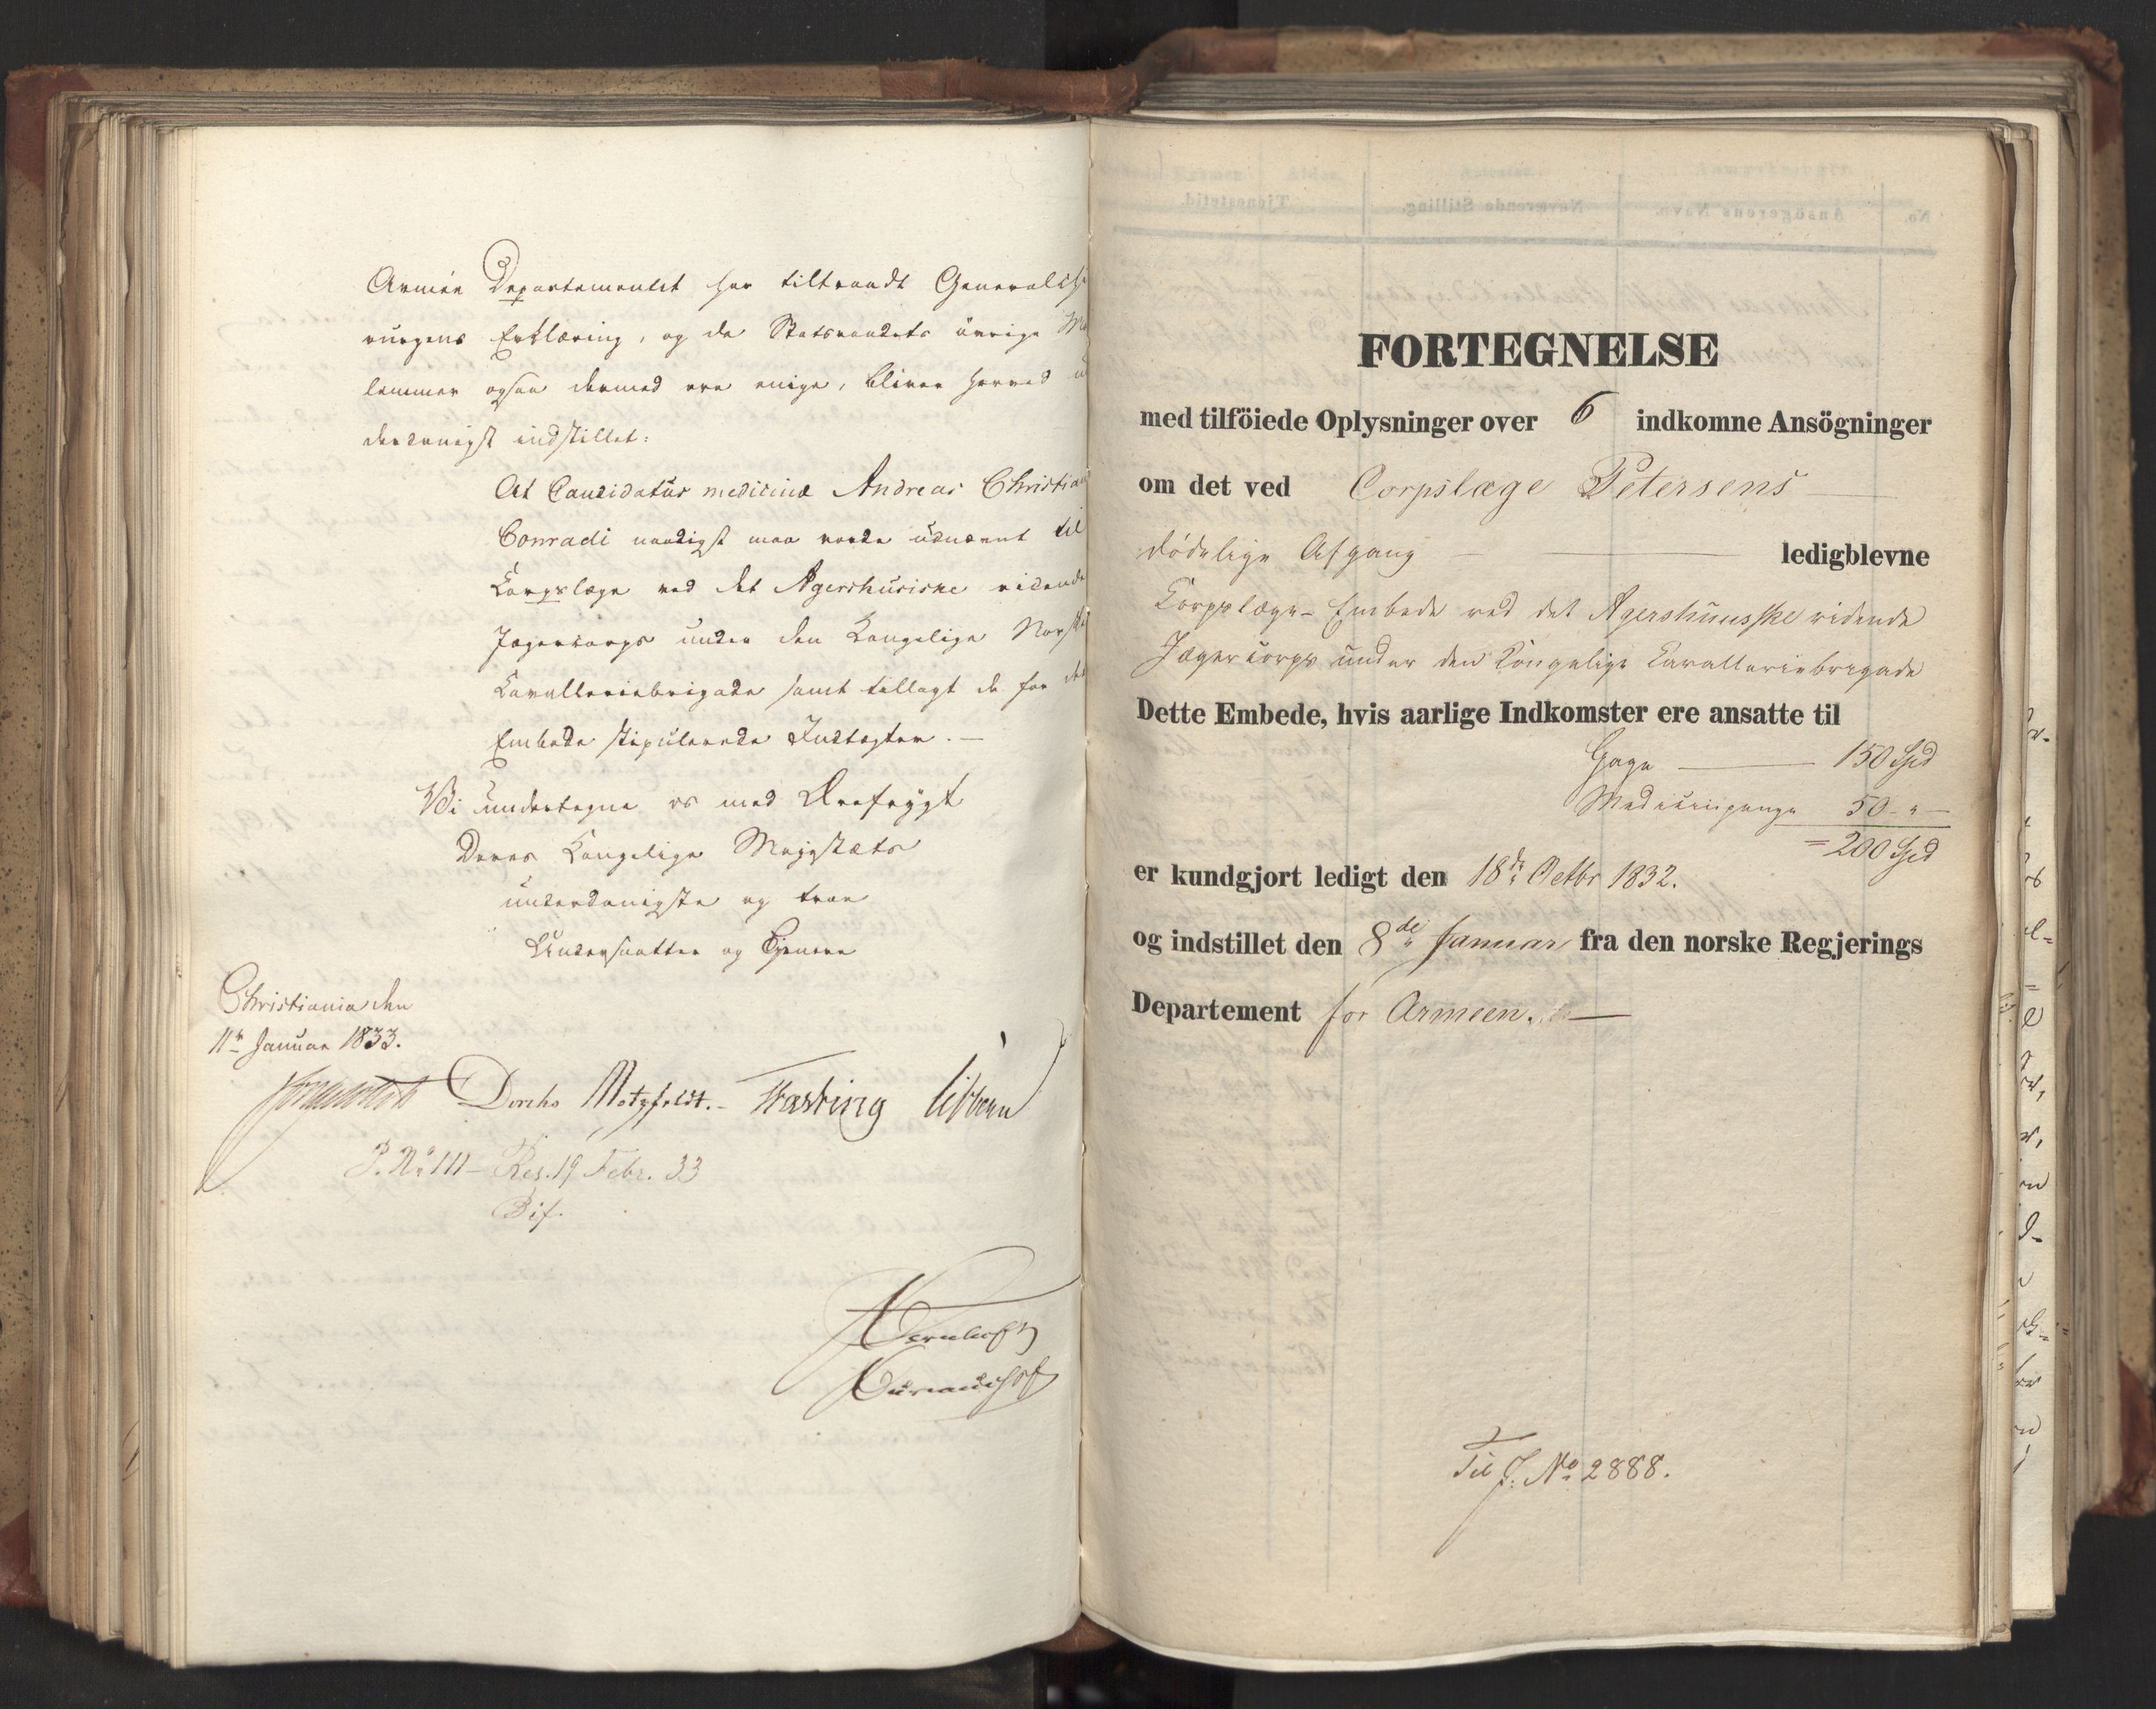 Armée Departementet har tiltraadt Generalchi
rurgens Erklæring, og da Statsraadets övrige Me
lemmer ogsaa dermed ere enige, bliver herved u
derdanigst indstillet:
At Candidatus medicinæ Andreas Christian
Conradi naadigst maa vorde udnævnt til
Corpslæge ved det Agershusiske ridende
Jægercorps under den Kongelige Norske
Cavalleriebrigade samt tillagt de for det
Embede stipulerede Indtægter. —
Vi undertegne os med Ærefrygt
Deres Kongelige Majestæts
underdanigste og troe
Undersaatter og Tjenere
Christiania den
11te Januar 1833.
Diriks Motzfeldt. Fasting Sibbern
P. No 111 - Res. 19 Febr. 33
Bif.
FORTEGNELSE
med tilföiede Oplysninger over 6 indkomne Ansögninger
om det ved Corpslæge Petersens —
dødelige Afgang — — ledigblevne
Corpslæge-Embede ved det Agershuusske ridende
Jægercorps under den Kongelige Cavalleriebrigade
Dette Embede, hvis aarlige Indkomster ere ansatte til
Gage — 150 Spd
Medicinpenge 50 - " —
= 200 Spd
er kundgjort ledigt den 18de Octbr 1832.
og indstillet den 8de Januar fra den norske Regjerings
Departement for Armeen. —
Til J. No 2888.